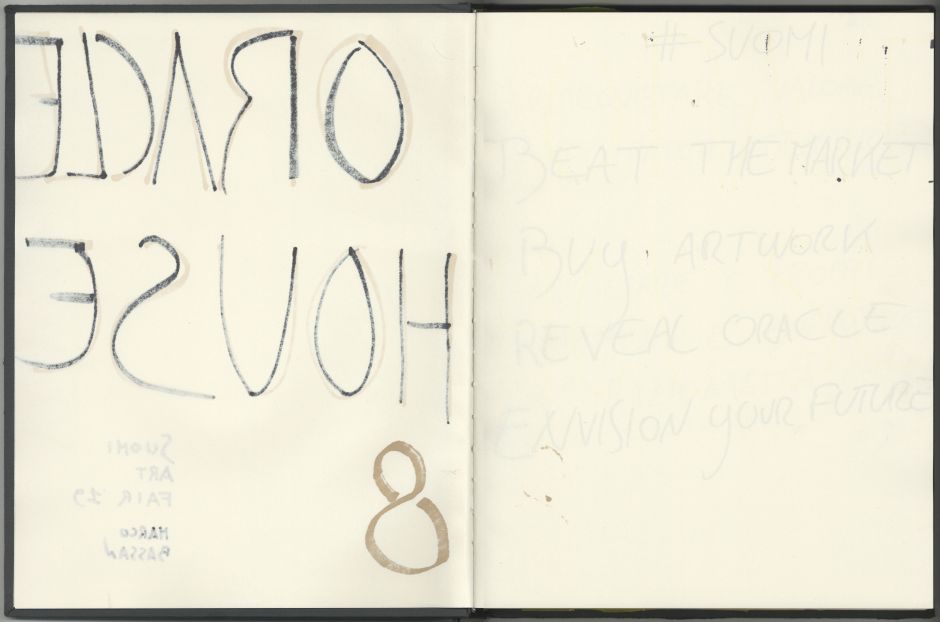 ORACLE
HOUSE
8
SUOMI
ART
FAIR 19
MARCO
BASSAN
# SUOMI
BEAT THE MARKET
BUY ARTWORK
REVEAL ORACLE
ENVISION YOUR FUTURE